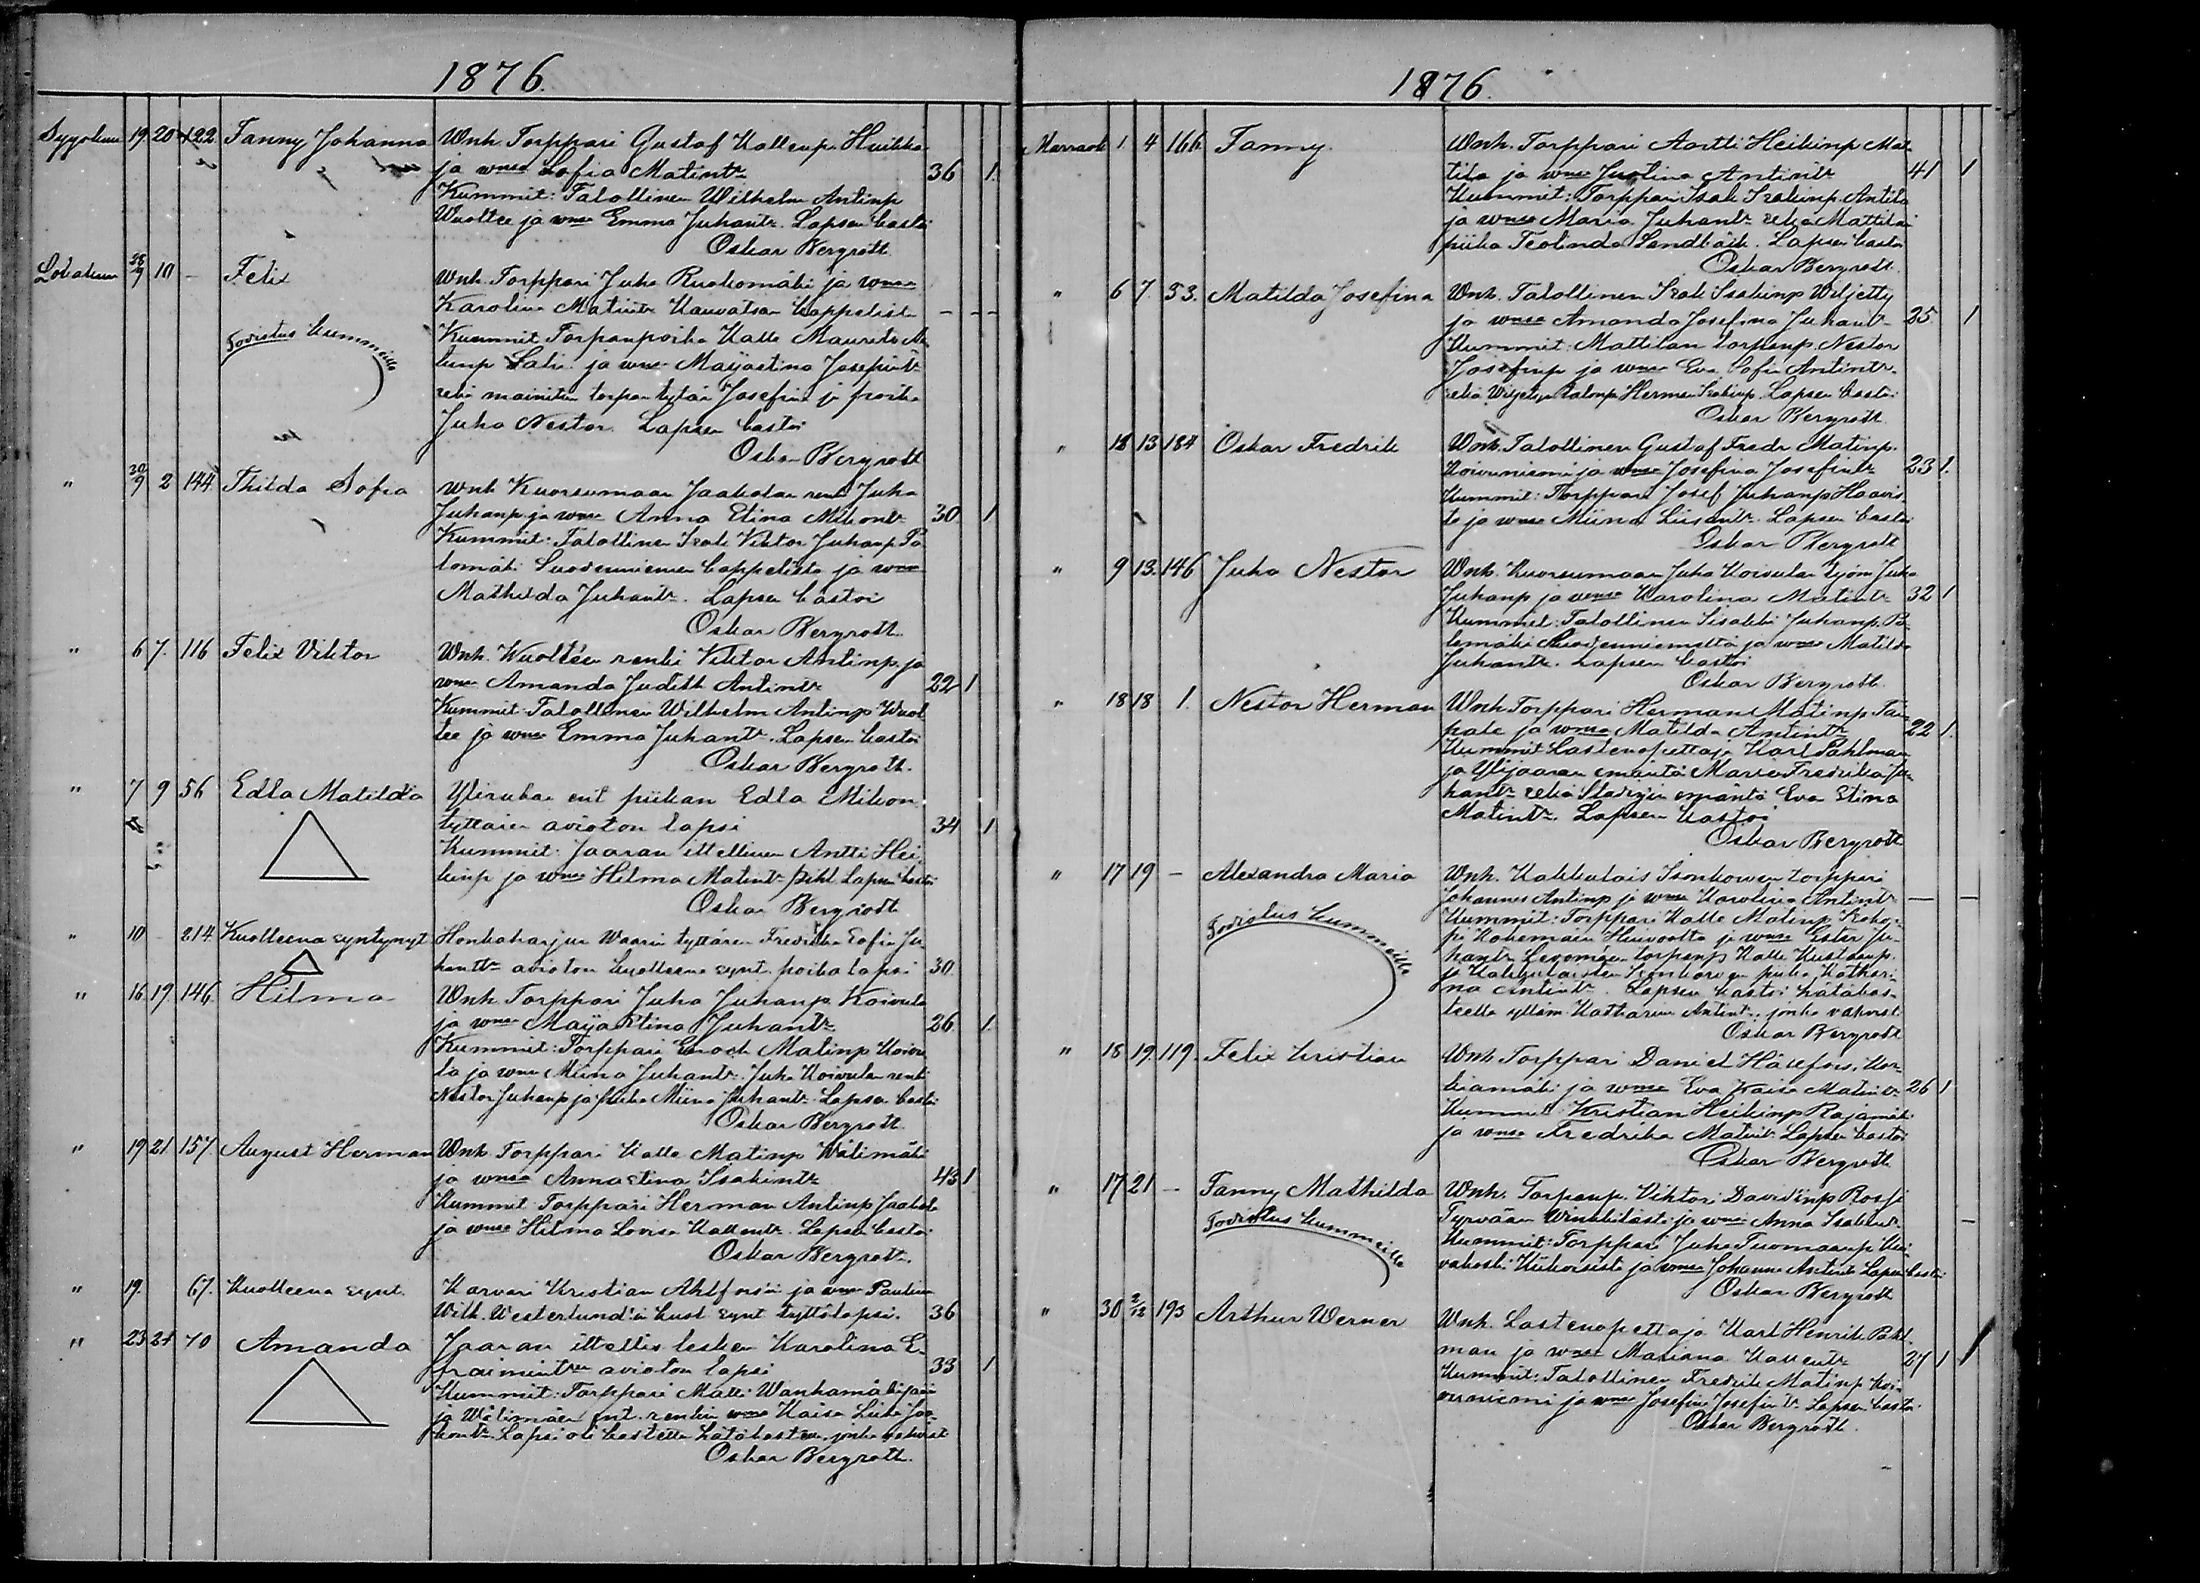 1876.
Syyskuu 19. 20 122 Fanny Johanna Wnh. Torppari Gustaf Kallenp. Huikka
ja wmsa Sofia Matintr 36 1
Kummit: Talollinen Wilhelm Antinp
Wuoltee ja wmsa Emma Juhantr. Lapsen kastoi
Oskar Bergroth
Lokakuu 28/9 10 - Felix Wnh. Torppari Juha Ruokomäki ja wmsa
Karolina Matintr Kauvatsan kappelista - - -
Todistus kummeille Kummit Torpanpoika Kalle Maurits
Lahi ja wmsa Maijastina Josefintr
sekä mainitun torpan tytär Josefina ja poika
Juha Nestor. Lapsen kastoi
Oskar Bergroth
" 30/9 2 144 Thilda Sofia Wnh. Kuorsumaan Jaakolan renki Juha
Juhanp ja wmsa Anna Stina Mikontr 30 1
Kummit: Talollinen Isak Viktor Juhanp Pa-
lomäki Suodenniemen kappelista ja wmsa
Mathilda Juhantr. Lapsen kastoi
Oskar Bergroth
" 6 7. 116 Felix Viktor Wnh. Wuolteen renki Viktor Antinp. ja
wmsa Amanda Judith Antintr 22 1
Kummit: Talollinen Wilhelm Antinp Wuol
tee ja wmsa Emma Juhantr. Lapsen kastoi
Oskar Bergroth.
" 7 9 56 Edla Matilda Yliruhan ent piikan Edla Mikon
tyttären avioton lapsi 34 1
Kummit: Jaaran itsellinen Antti Hei
kinp ja wmsa Hilma Matintr Pihl. Lapsen kastoi
Oskar Bergroth
" 10 214 Kuolleena syntynyt Honkaharjun Waarin tyttären Fredrika Sofia Ju
hantr avioton kuolleena synt. poika lapsi 30.
" 16 19 146. Hilma Wnh. Torppari Juha Juhanp. Koivula
ja wmsa Maija Stina Juhantr 26 1
Kummit: Torppari Enoch Matinp Koivu
la ja wmsa Miina Juhantr. Juha Koivulan renki
Nestor Juhanp ja piika Miina Juhantr. Lapsen kastoi
Oskar Bergroth
" 19 21 157. August Herman Wnh. Torppari Kalle Matinp Wälimäki
ja wmsa Anna Stina Isakintr 43 1
Kummit Torppari Herman Antinp Jaakola
ja wmsa Hilma Lovisa Kallentr. Lapsen kastoi
Oskar Bergroth.
" 19. 67. Kuolleena synt. Karvari Kristian Ahlforsin ja wmsa Paulina
Wilh. Westerlund'in kuol synt tyttölapsi. 36
" 23 24 70 Amanda Jaaran itsellis lesken Karolina E-
fraimintren avioton lapsi 33 1
Kummit: Torppari Matti Wanhamäki
ja Wälimäen ent. renkin wmsa Kaisa Liisa Jaa-
kontr. Lapsi oli kastettu hätäkasteen, jonka vahvist
Oskar Bergroth.
1876.
Marrask 1 4 166 Fanny. Wnh. Torppari Antti Heikinp Mat
tila ja wmsa Justina Antintr 41 1
Kummit: Torppari Isak Isakinp. Antila
ja wmsa Maria Juhantr sekä Mattilan
piika Teolinda Sandbäck. Lapsen kastoi
Oskar Bergroth.
" 6 7. 53. Matilda Josefina Wnh. Talollinen Isak Isakinp Wiljetty
ja wmsa Amanda Josefina Juhantr 25 1
Kummit: Mattilan torpanp. Nestor
Josefinp ja wmsa Eva Sofia Antintr.
sekä Wiljetyn talonp Herman Isakinp. Lapsen kastoi
Oskar Bergroth
" 12 13 184 Oskar Fredrik Wnh. Talollinen Gustaf Fredr Matinp.
Koivuniemi ja wmsa Josefina Josefintr 23 1.
Kummit: Torppari Josef Juhanp Haavis
to ja wmsa Miina Liisantr. Lapsen kastoi
Oskar Bergroth
" 9 13. 146 Juho Nestor Wnh. Kuorsumaan Juha Koivulan työm Juha
Juhanp ja wmsa Karolina Matintr 32 1
Kummit: Talollinen Iisakki Juhanp. Pa-
lomäki Suodenniemeltä ja wmsa Matilda
Juhantr. Lapsen kastoi
Oskar Bergroth
" 18 18 1. Nestor Herman Wnh Torppari Herman Matinp Tai
pale ja wmsa Matilda Antintr 22 1.
Kummit Lastenopettaja Karl Pahlman
ja Ylijaaran emäntä Maria Fredrika Ju
hantr sekä emäntä Eva Stina
Matintr. Lapsen kastoi
Oskar Bergroth
" 17 19 - Alexandra Maria Wnh. Kakkulais Isonkorven torppari
Johannes Antinp ja wmsa Karolina Antintr - -
Todistus kummeille Kummit: Torppari Kalle Matinp
Kokemäen ja wmsa Ester Ju-
hantr torpanp Kalle Kustaanp.
ja piika Kathari-
na Antintr. Lapsen kastoi hätäkas-
teella ylläm. Katharina Antintr, jonka vahvist.
Oskar Bergroth
" 18 19 119. Felix Kristian Wnh Torppari Daniel Hällfors, Kor-
kiamäki ja wmsa Eva Kaisa Matintr 26 1
Kummit Kristian Heikinp Rajamäki
ja wmsa Fredrika Matintr. Lapsen kastoi
Oskar Bergroth
" 17 21 - Fanny Mathilda Wnh. Torpanp. Viktori Davidinp Rosi
Todistus kummeille Tyrvään ja wmsa Anna Isakintr. -
Kummit: Torppari Juha Tuomaanp
ja wmsa Johanna Antintr Lapsen kastoi
Oskar Bergroth
" 30 2/12 193 Arthur Werner Wnh. Lastenopettaja Karl Henrik Pahl-
man ja wmsa Mariana Kallentr 27 1 1
Kummit: Talollinen Fredrik Matinp Koi-
vuniemi ja wmsa Josefina Josefintr. Lapsen kastoi
Oskar Bergroth.